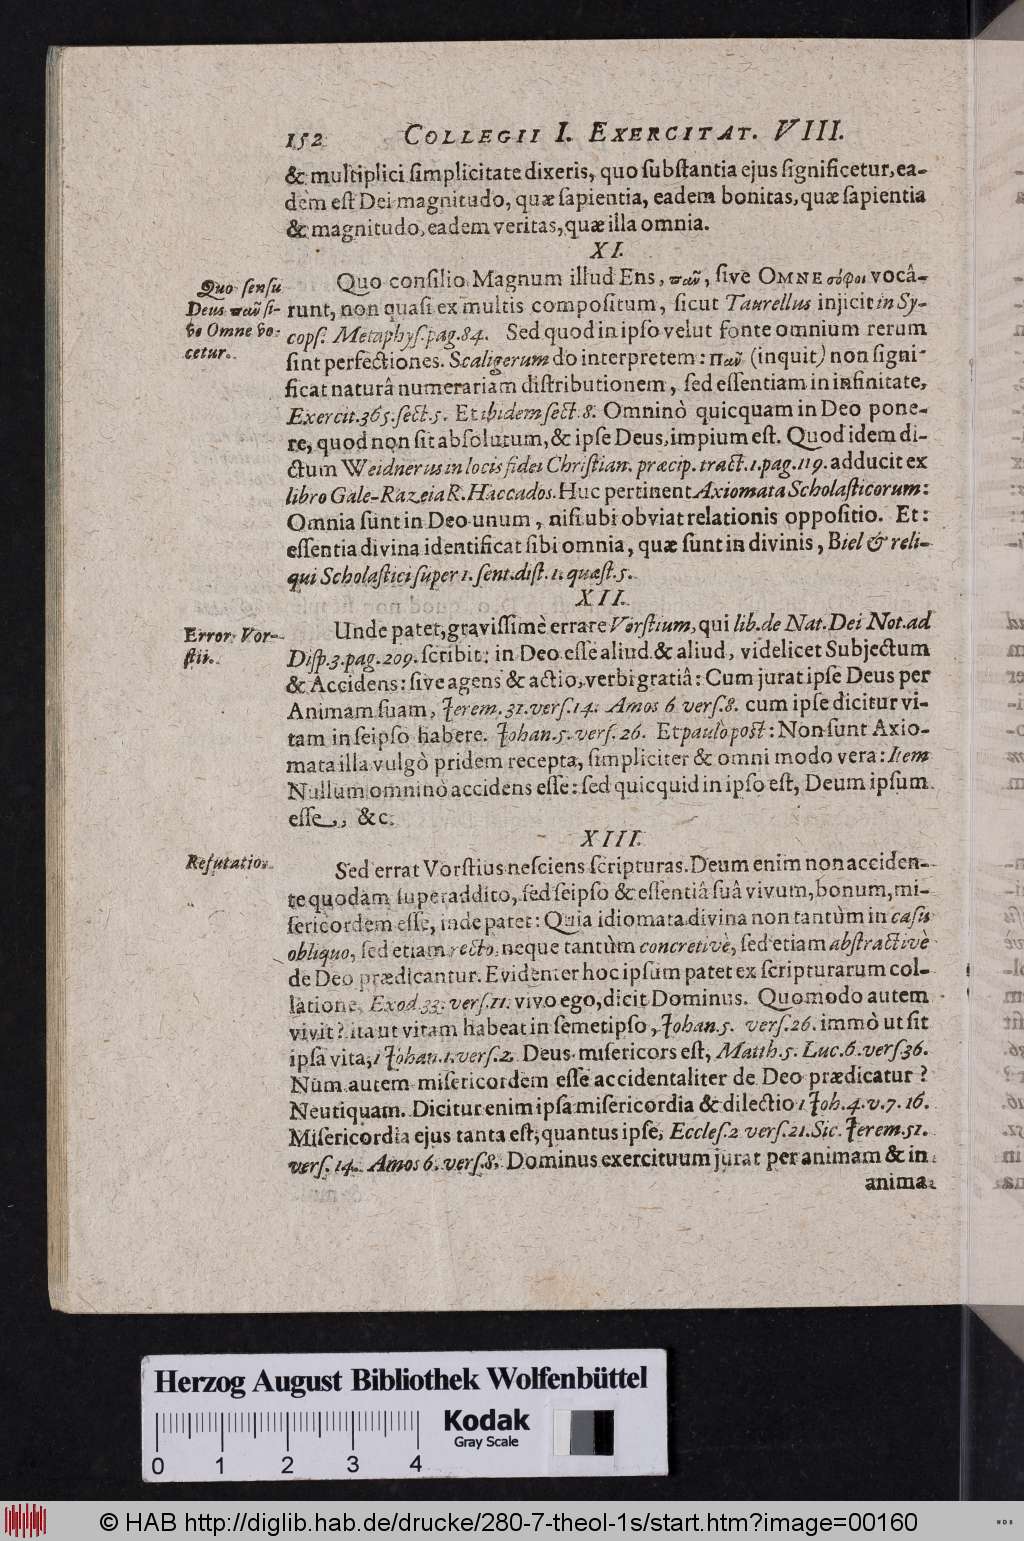 152 COLLEGII I. EXERCITAT. VIII.
& multiplici ſimplicitate dixeris, quo ſubſtantia ejus ſignificetur, ea-
dem eſt Dei magnitudo, quæ ſapientia, eadem bonitas, quæ ſapientia
& magnitudo, eadem veritas, quæ illa omnia.
XI.
Quo ſenſu
Deus παῦ ſi-
ve Omne vo-
cetur.
Quo conſilio Magnum illud Ens, παῦ, ſive OMNE σόφοι vocâ-
runt, non quaſi ex multis compoſitum, ſicut Taurellus injicit in Sy-
copſ. Metaphyſ. pag. 84. Sed quod in ipſo velut fonte omnium rerum
ſint perfectiones. Scaligerum do interpretem: παῦ (inquit) non ſigni-
ficat naturâ numerariam diſtributionem, ſed eſſentiam in infinitate,
Exercit. 365. ſect. 5. Et ibidem ſect. 8. Omninò quicquam in Deo pone-
re, quod non ſit abſolutum, & ipſe Deus, impium eſt. Quod idem di-
ctum Weidnerus in locis fidei Chriſtian. præcip. tract. 1. pag. 119. adducit ex
libro Gale-Razeia R. Haccados. Huc pertinent Axiomata Scholaſticorum:
Omnia ſunt in Deo unum, niſi ubi obviat relationis oppoſitio. Et:
eſſentia divina identificat ſibi omnia, quæ ſunt in divinis, Biel & reli-
qui Scholaſtici ſuper 1. ſent. diſt. 1. quæſt. 5.
XII.
Error Vor-
ſtii.
Unde patet, graviſſimè errare Vorſtium, qui lib. de Nat. Dei Not. ad
Diſp. 3. pag. 209. ſcribit: in Deo eſſe aliud & aliud, videlicet Subjectum
& Accidens: ſive agens & actio, verbi gratiâ: Cum jurat ipſe Deus per
Animam ſuam, Jerem. 31. verſ. 14. Amos 6 verſ. 8. cum ipſe dicitur vi-
tam in ſeipſo habere. Johan. 5. verſ. 26. Et paulò poſt: Non ſunt Axio-
mata illa vulgò pridem recepta, ſimpliciter & omni modo vera: Item
Nullum omninò accidens eſſe: ſed quicquid in ipſo eſt, Deum ipſum
eſſe, &c.
XIII.
Refutatio.
Sed errat Vorſtius neſciens ſcripturas. Deum enim non acciden-
te quodam ſuperaddito, ſed ſeipſo & eſſentiâ ſuâ vivum, bonum, mi-
ſericordem eſſe, inde patet: Quia idiomata divina non tantùm in caſu
obliquo, ſed etiam recto, neque tantùm concretivè, ſed etiam abſtractivè
de Deo prædicantur. Evidenter hoc ipſum patet ex ſcripturarum col-
latione, Exod. 33. verſ. 11. vivo ego, dicit Dominus. Quomodo autem
vivit? ita ut vitam habeat in ſemetipſo, Johan. 5. verſ. 26. immò ut ſit
ipſa vita, 1 Johan. 1. verſ. 2. Deus miſericors eſt, Matth. 5. Luc. 6. verſ 36.
Num autem miſericordem eſſe accidentaliter de Deo prædicatur?
Neutiquam. Dicitur enim ipſa miſericordia & dilectio 1 Joh. 4. v. 7. 16.
Miſericordia ejus tanta eſt, quantus ipſe, Eccleſ. 2 verſ. 21. Sic Jerem. 51.
verſ. 14. Amos 6. verſ. 8. Dominus exercituum jurat per animam & in
anima
Herzog August Bibliothek Wolfenbüttel
Kodak
Gray Scale
0 1 2 3 4
© HAB http://diglib.hab.de/drucke/280-7-theol-1s/start.htm?image=00160